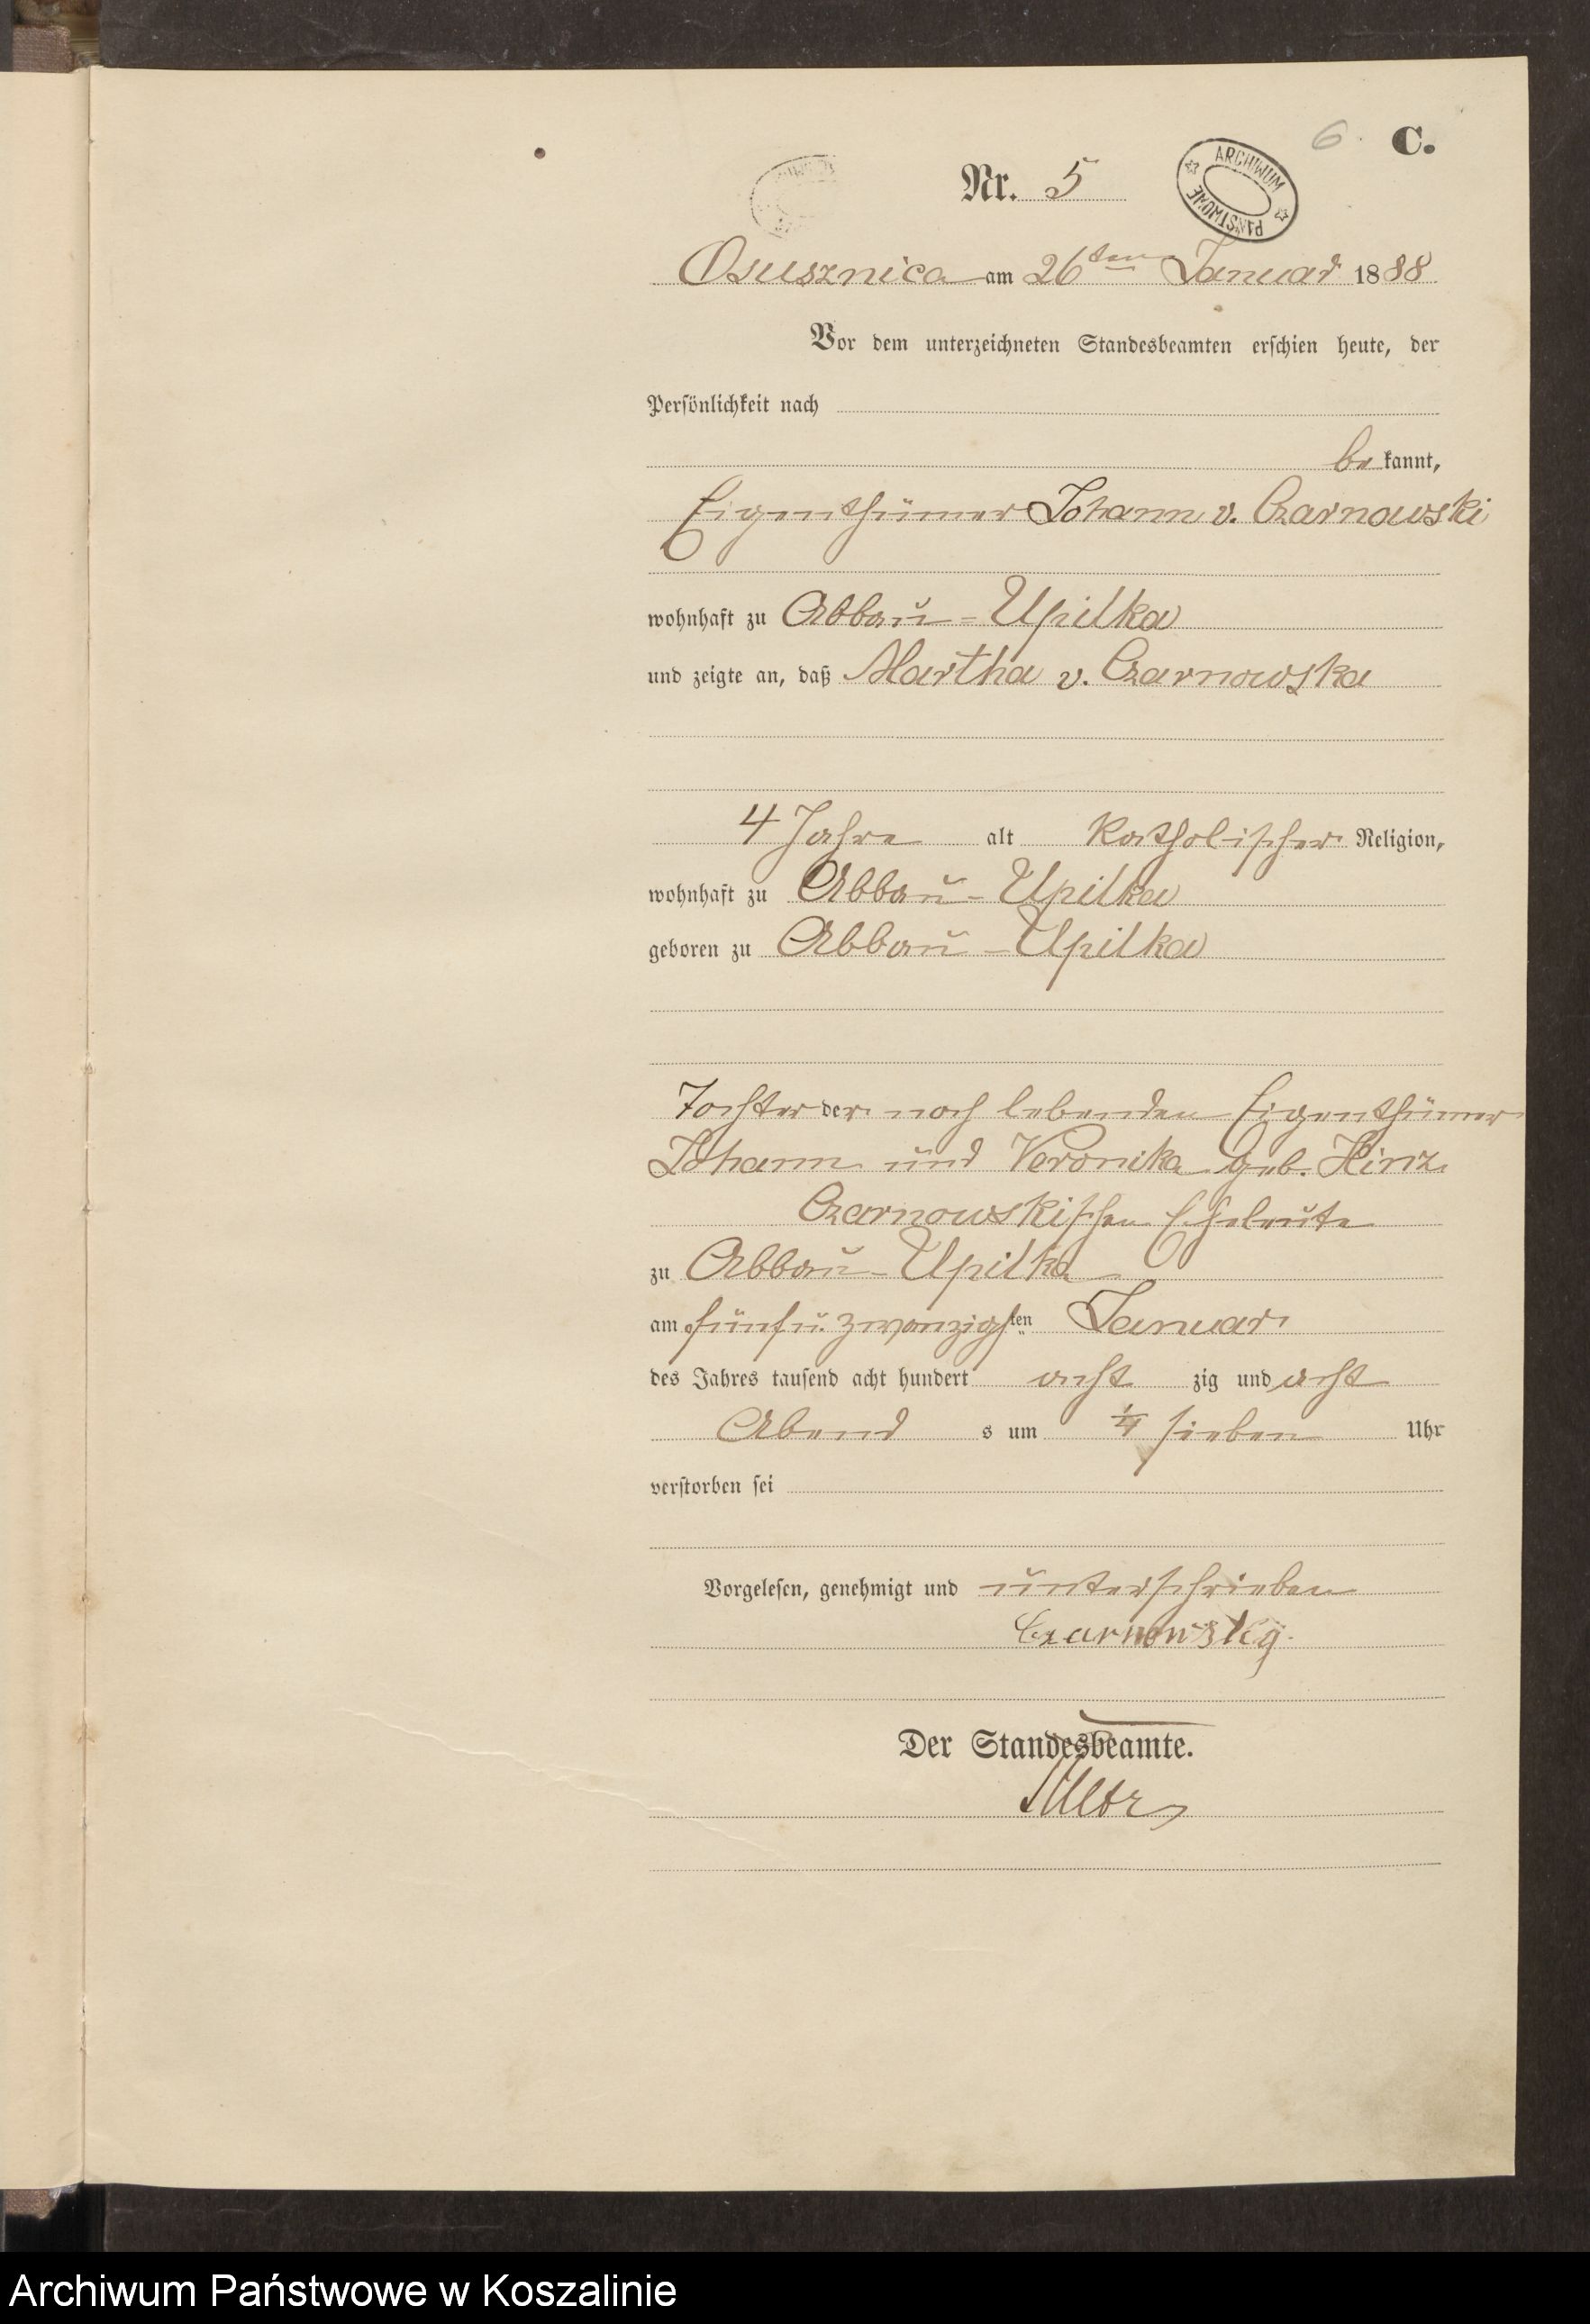 6.
C.
Nr. 5
ARCHIWUM PAŃSTWOWE
Osusznica am 26ten Januar 1888
Vor dem unterzeichneten Standesbeamten erschien heute, der
Persönlichkeit nach
be kannt,
Eigenthümer Johann v. Czarnowski
wohnhaft zu Abbau-Upilka
und zeigte an, daß Martha v. Czarnowska
4 Jahre alt katholischer Religion,
wohnhaft zu Abbau-Upilka
geboren zu Abbau-Upilka
Tochter der noch lebenden Eigenthümer
Johann und Veronika geb. Hinz
Czarnowskischen Eheleute
zu Abbau-Upilka
am fünf u. zwanzigsten Januar
des Jahres tausend acht hundert acht zig und acht
Abend s um ¼ sieben Uhr
verstorben sei
Vorgelesen, genehmigt und unterschrieben
Czarnowsky.
Der Standesbeamte.
Archiwum Państwowe w Koszalinie